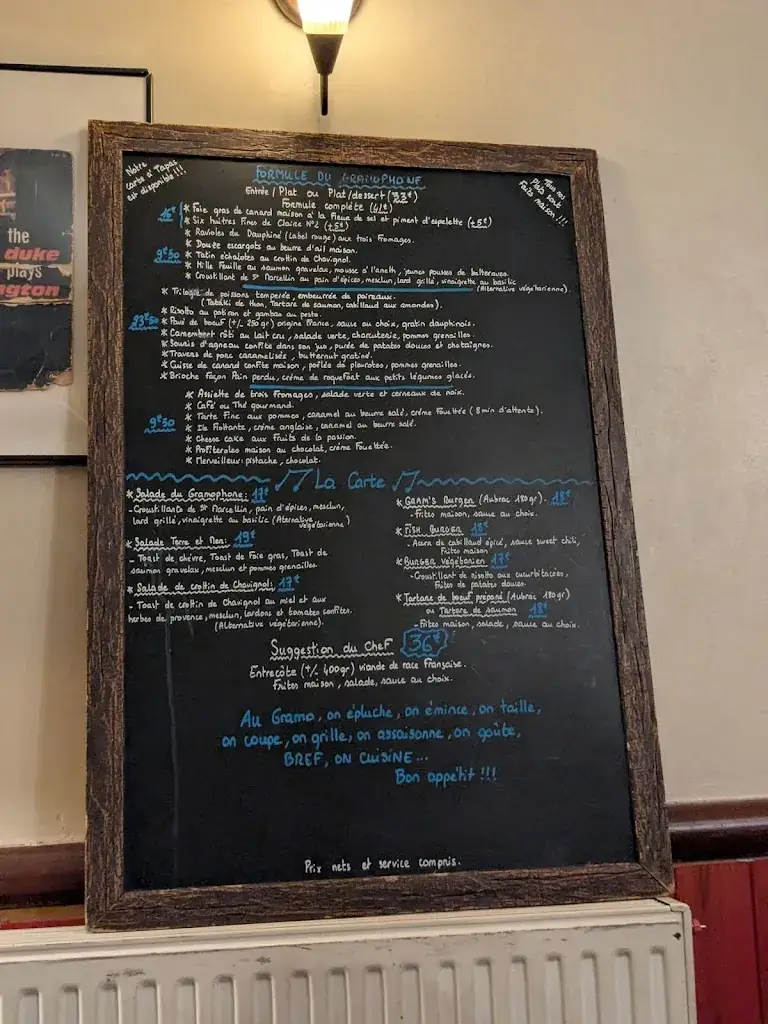 the
duke
plays
ngton
Notre
carte à Tapas
est disponible!!!
Tous nos
plats sont
faits maison!!!
FORMULE DU GRAMOPHONE
Entrée / Plat ou Plat/dessert (33€)
Formule complète (41€)
* Foie gras de canard maison à la fleur de sel et piment d'espelette (+5€)
* Six huîtres fines de Claire N°2 (+5€)
* Ravioles du Dauphiné (Label rouge) aux trois fromages.
* Douze escargots au beurre d'ail maison.
9€50
* Tatin échalotes au crottin de Chavignol.
* Mille feuille au saumon gravelax, mousse à l'aneth, jeunes pousses de betteraves.
* Croustillant de St Marcellin au pain d'épices, mesclun, lard grillé, vinaigrette au basilic
(Alternative végétarienne).
* Trilogie de poissons tempérée, embeurrée de poireaux.
(Tataki de thon, Tartare de saumon, cabillaud aux amandes).
* Risotto au potiron et gambas au pesto.
23€50
* Pavé de boeuf (+/- 250gr) origine France, sauce au choix, gratin dauphinois.
* Camembert rôti au lait cru, salade verte, charcuterie, pommes grenailles.
* Souris d'agneau confite dans son jus, purée de patates douces et chataignes.
* Travers de porc caramelisés, butternut gratiné.
* Cuisse de canard confite maison, poêlée de pleurotes, pommes grenailles.
* Brioche façon Pain perdu, crème de roquefort aux petits légumes glacés.
* Assiette de trois fromages, salade verte et cerneaux de noix.
* Café ou Thé gourmand.
* Tarte fine aux pommes, caramel au beurre salé, crème fouettée (8 min d'attente).
9€50
* Ile flottante, crème anglaise, caramel au beurre salé.
* Cheese cake aux fruits de la passion.
* Profiteroles maison au chocolat, crème fouettée.
* Merveilleux: pistache, chocolat.
La Carte
* Salade du Gramophone: 17€
- Croustillants de St Marcellin, pain d'épices, mesclun,
lard grillé, vinaigrette au basilic (Alternative
végétarienne)
* Salade Terre et Mer: 19€
- Toast de chèvre, Toast de foie gras, Toast de
saumon gravelax, mesclun et pommes grenailles.
* Salade de crottin de Chavignol: 17€
- Toast de crottin de Chavignol au miel et aux
herbes de provence, mesclun, lardons et tomates confites.
(Alternative végétarienne).
* GRAM'S BURGER (Aubrac 180gr). 18€
- Frites maison, sauce au choix.
* FISH BURGER 18€
- Accra de cabillaud épicé, sauce sweet chili,
Frites maison
* BURGER VÉGÉTARIEN 17€
- Croustillant de risotto aux cucurbitacées,
Frites de patates douces.
* Tartare de boeuf préparé (Aubrac 180gr)
ou Tartare de saumon 18€
- Frites maison, salade, sauce au choix.
Suggestion du Chef 36€
Entrecôte (+/- 400gr) viande de race Française.
Frites maison, salade, sauce au choix.
Au Gramo, on épluche, on émince, on taille,
on coupe, on grille, on assaisonne, on goûte,
BREF, ON CUISINE...
Bon appétit!!!
Prix nets et service compris.